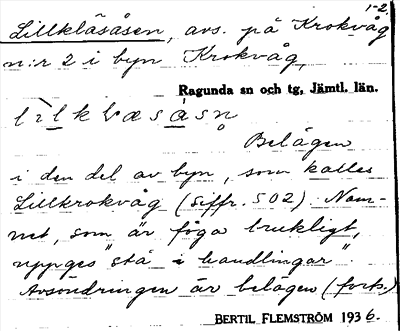 1-2.
Lillkläsåsen, avs. på Krokvåg
n:r 2 i byn Krokvåg,
Ragunda sn och tg, Jämtl. län.
Belägen
i den del av byn, som kallas
Lillkrokvåg (siffr. 502). Nam-
net, som är föga brukligt,
uppges "stå i handlingar".
Avsöndringen är belägen (forts.)
BERTIL FLEMSTRÖM 1936.